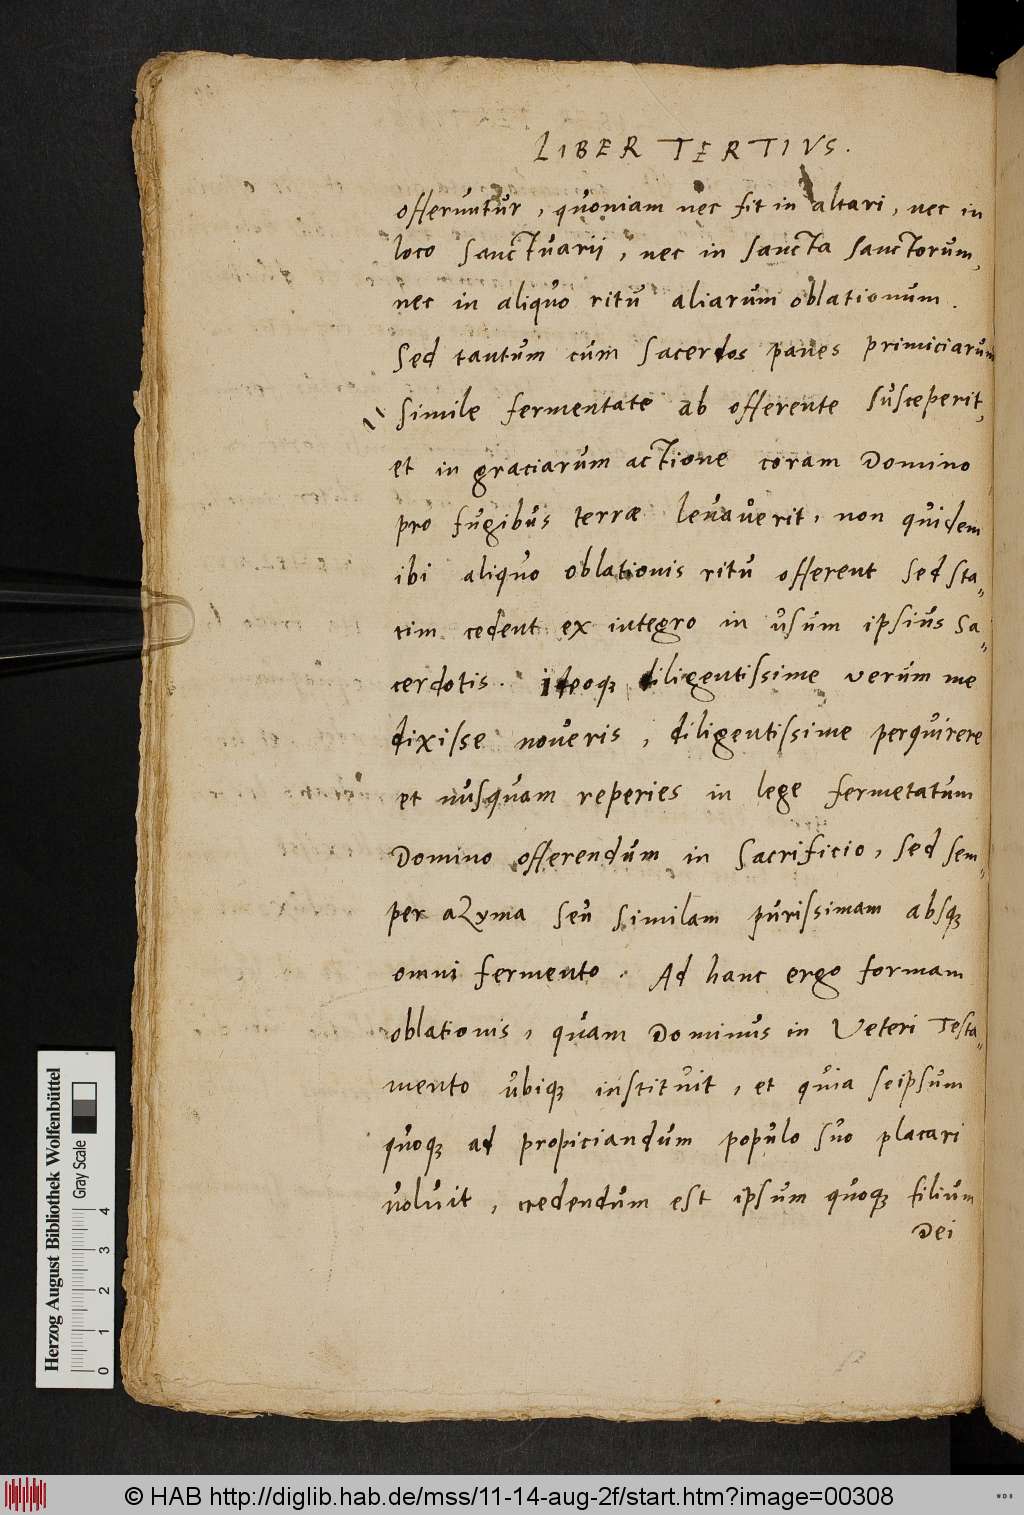 LIBER TERTIVS.
offeruntur, quoniam nec fit in altari, nec in
loco sanctuarii, nec in sancta sanctorum,
nec in aliquo ritu aliarum oblationum.
Sed tantum cum sacerdos panes primiciarum
simile fermentate ab offerente susceperit,
et in graciarum actione coram Domino
pro fugibus terræ levaverit, non quidem
ibi aliquo oblationis ritu offerent sed sta„
tim cedent ex integro in usum ipsius sa„
cerdotis. ideoqꝫ diligentissime verum me
dixisse noveris, diligentissime perquirere
et nusquam reperies in lege fermetatum
Domino offerendum in sacrificio, sed sem„
per azyma seu similam purissimam absqꝫ
omni fermento. Ad hanc ergo formam
oblationis, quam Dominus in Veteri Testa„
mento ubiqꝫ instituit, et quia seipsum
quoqꝫ ad propiciandum populo suo placari
voluit, credendum est ipsum quoqꝫ filium
Dei
Herzog August Bibliothek Wolfenbüttel
Gray Scale
0 1 2 3 4
© HAB http://diglib.hab.de/mss/11-14-aug-2f/start.htm?image=00308